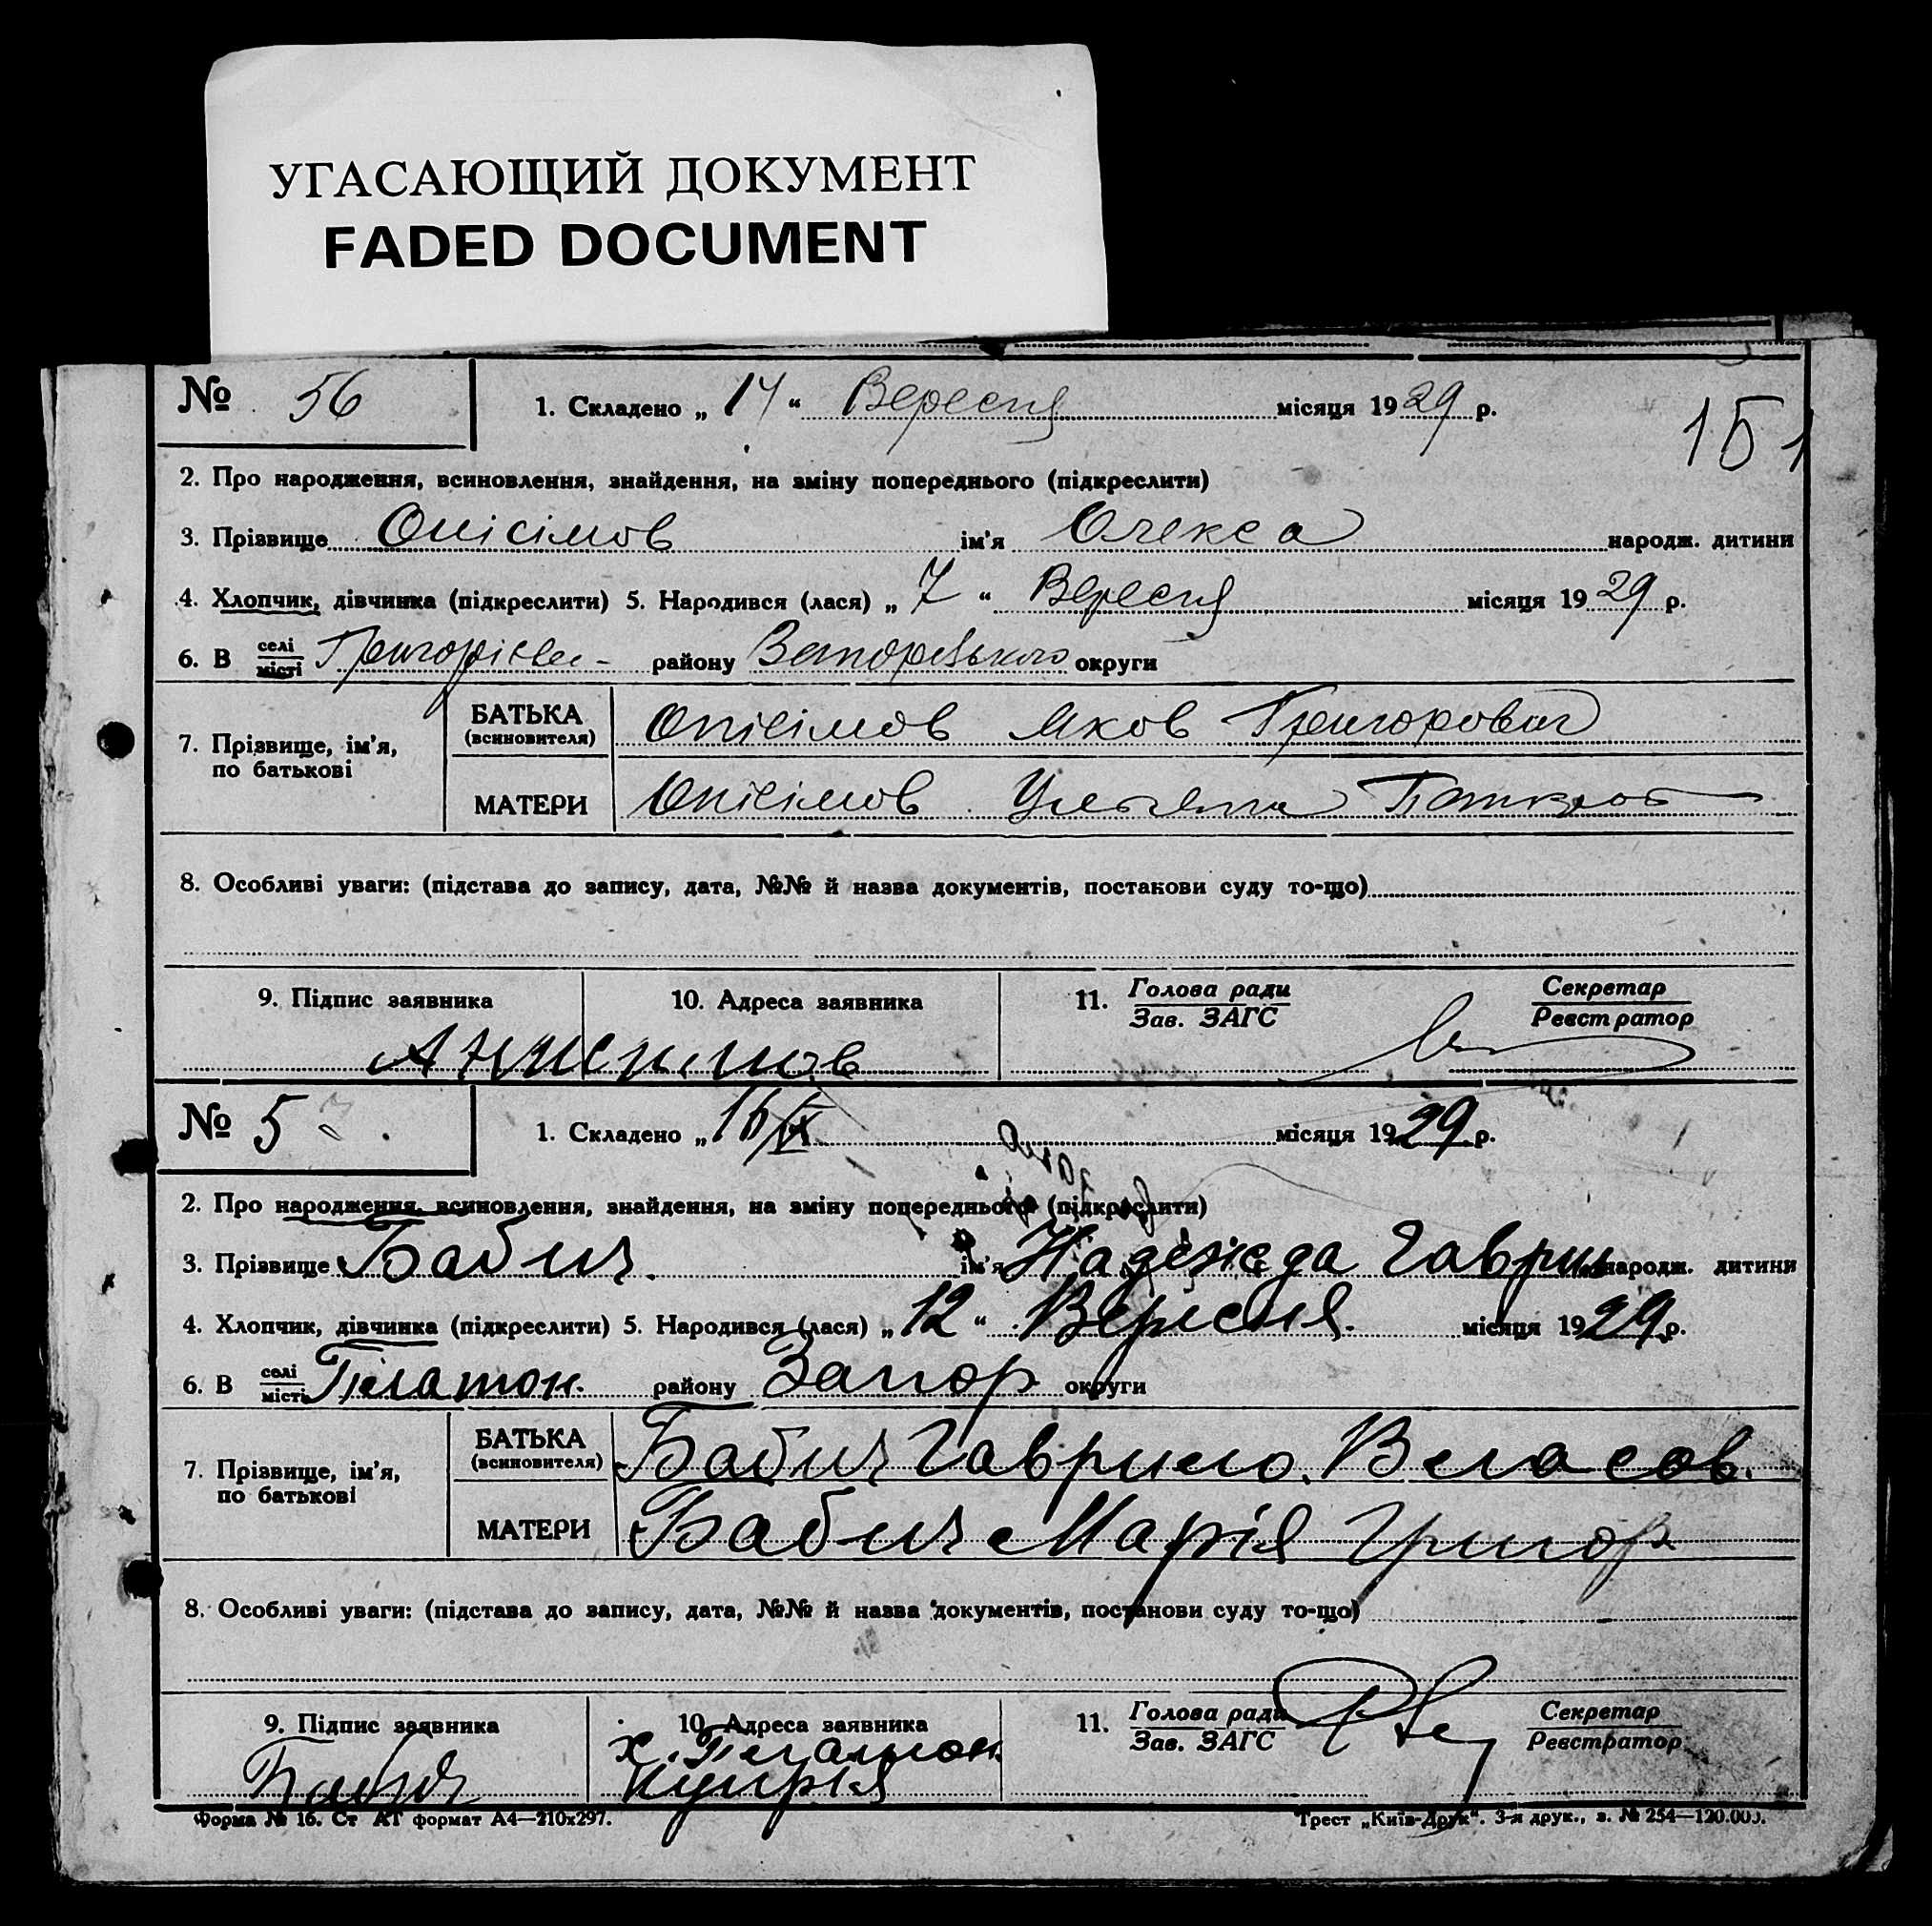 УГАСАЮЩИЙ ДОКУМЕНТ
FADED DOCUMENT
№ 56 1. Складено „ 14 “ Вересня місяця 1929 р.
151
2. Про народження, всиновлення, знайдення, на зміну попереднього (підкреслити)
3. Прізвище Онісімов ім'я Олекса народж. дитини
4. Хлопчик, дівчинка (підкреслити) 5. Народився (лася) „ 7 “ Вересня місяця 1929 р.
6. В селі місті району округи
7. Прізвище, ім'я, по батькові
БАТЬКА (всиновителя) Онісімов Яков Григорович
МАТЕРИ Онісімов
8. Особливі уваги: (підстава до запису, дата, №№ й назва документів, постанови суду то-що)
9. Підпис заявника 10. Адреса заявника 11. Голова ради Зав. ЗАГС Секретар Реєстратор
Анисимов
№ 5 1. Складено „ 16/IX місяця 1929 р.
2. Про народження, всиновлення, знайдення, на зміну попереднього (підкреслити)
3. Прізвище Бабич ім'я Надежда Гаврил народж. дитини
4. Хлопчик, дівчинка (підкреслити) 5. Народився (лася) „ 12 “ Вересня місяця 1929 р.
6. В селі місті Платон. району Запор округи
7. Прізвище, ім'я, по батькові
БАТЬКА (всиновителя) Бабич Гаврило Власов.
МАТЕРИ Бабич Марія Григор
8. Особливі уваги: (підстава до запису, дата, №№ й назва документів, постанови суду то-що)
9. Підпис заявника 10. Адреса заявника 11. Голова ради Зав. ЗАГС Секретар Реєстратор
Бабич х. Платон.
Форма № 16. Ст АТ формат А4—210x297. Трест „Київ-Друк“. 3-я друк., з. № 254—120.000.